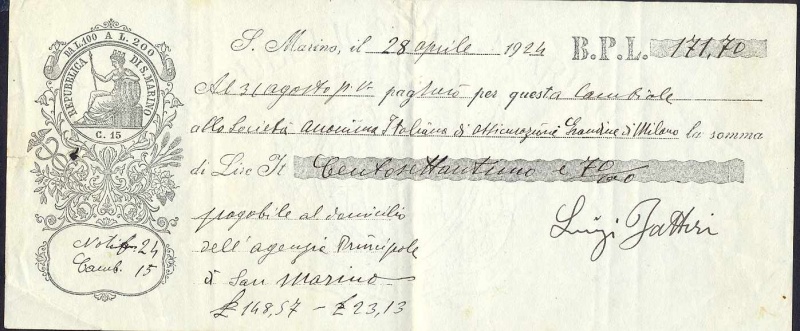 DA L.100 A L. 200
REPUBBLICA DI S. MARINO
C. 15
S. Marino, il 28 aprile 1924 B.P.L. 171,70
Al 31 agosto p.v. pagherò per questa Cambiale
alla Società Anonima Italiana di Assicurazioni Grandine di Milano la somma
di Lire It Centosettantuno e 70/00
pagabile al domicilio
dell'agenzia Principale
di San Marino
£ 148,57 – £ 23,13
Luigi
Notif. 24
Camb. 15